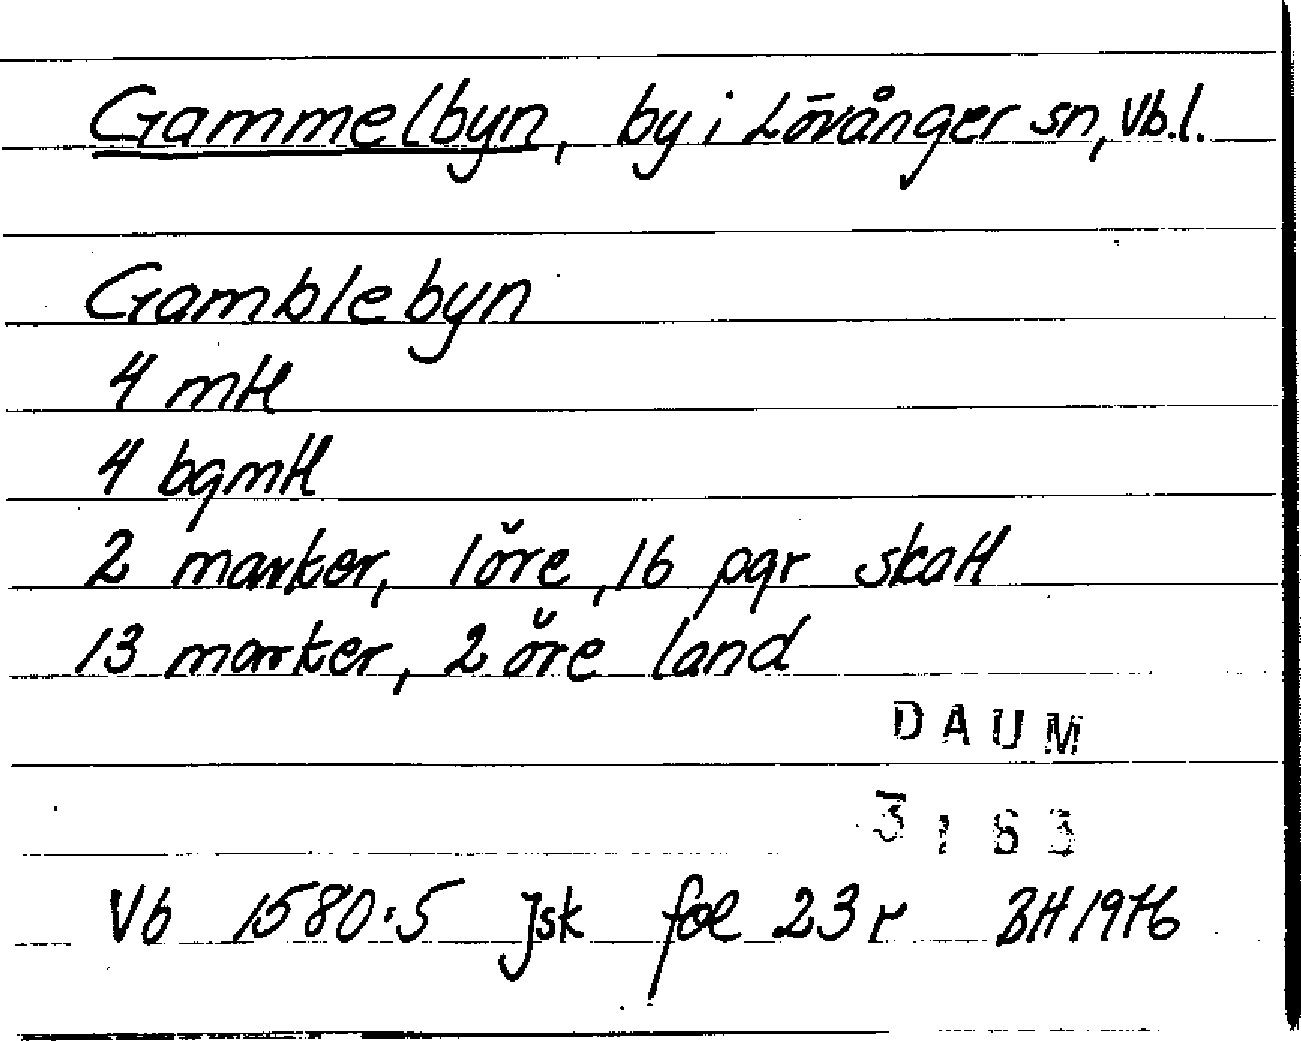 Gammelbyn, by i Lövånger sn, Vb.l.
Gamblebyn
4 mtl
4 bgmtl
2 marker, 1 öre, 16 pgr skatt
13 marker, 2 öre land
DAUM
3163
Vb 1580:5 Jsk fol 23 r BH 1976